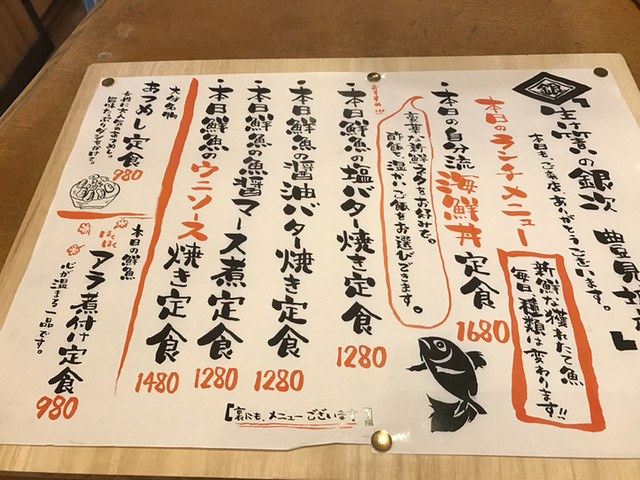 銀
生け簀の銀次 豊見城
本日もご来店、ありがとうございます。
新鮮な獲れたて魚
毎日、種類は変わります!!
本日のランチメニュー
・本日の自分流海鮮丼定食 1680
豪華な新鮮ネタをお好みで。
酢飯と、温かいご飯をお選びできます。
おすすめ!!!
・本日鮮魚の塩バター焼き定食 1280
・本日鮮魚の醤油バター焼き定食 1280
・本日鮮魚の魚醤マース煮定食 1280
・本日鮮魚のウニソース焼き定食 1480
大分名物
あつめし定食 980
本日の鮮魚
ほくほく
アラ煮付け定食 980
心が温まる一品です。
【裏にも、メニューございます】